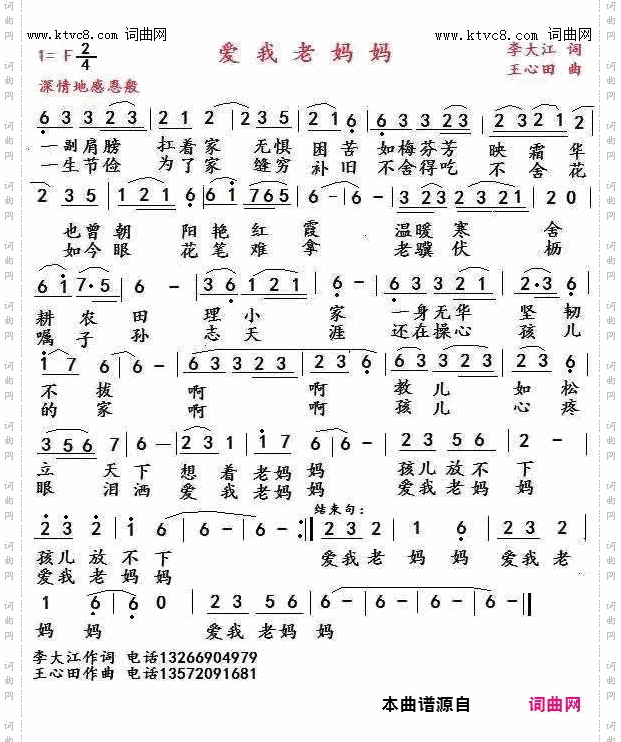 www.ktvc8.com 词曲网
www.ktvc8.com 词曲网
1= F 2/4
爱我老妈妈
李大江 词
王心田 曲
深情地感恩般
6 3 3 2 3 2 1 2 2 3 5 2 1 6 6 3 3 2 1 2 3 2 1 2
一副肩膀 扛着家 无惧困苦 如梅芬芳 映霜华
一生节俭 为了家 缝穷补旧 不舍得吃 不舍花
2 3 5 1 2 1 6 6 1 7 6 5 6 - 6 - 3 2 3 2 3 2 1 2 0
也曾朝 阳艳红霞 温暖寒舍
如今眼 花笔难拿 老骥伏枥
6 1 7·5 6 - 3 6 1 2 1 6 - 6 3 3 2 1 2·3 6
耕农田 理小家 一身无华 坚韧
嘱子孙 志天涯 还在操心 孩儿
1 7 6 6 - 6 3 3 2 3 2 3 6 6 3 2 1 2 3
不拔 啊 啊 教儿 如松
的家 啊 啊 孩儿 心疼
3 5 6 7 6 - 2 3 1 1 7 6 - 2 3 5 6 7
立天下 想着老妈妈 孩儿放不下
眼泪洒 爱我老妈妈 爱我老妈妈
结束句:
2 3 2 1 6 6 - 6 - :|| 2 3 2 1 6 6 - 2 3 2
孩儿放不下 爱我老妈妈 爱我老
爱我老妈妈
1 6 6 0 2 3 5 6 6 - 6 - 6 - 6 - ||
妈妈 爱我老妈妈
李大江作词 电话13266904979
王心田作曲 电话13572091681
本曲谱源自 词曲网